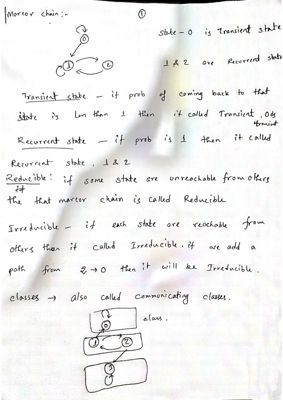 Marcor chain:-
①
state-0 is Transient state
0
1
2
1 & 2 are Recurrent state
Transient state - if prob of coming back to that
state is less than 1 then it called Transient, 0 is
transient
Recurrent state - if prob is 1 then it called
Recurrent state, 1 & 2
Reducible: if some state are unreachable from others
the that marcor chain is called Reducible
Irreducible - if each state are reachable from
others then it called Irreducible. if we add a
path from 2→0 then it will be Irreducible.
classes → also called communicating classes.
class.
0
1
2
3